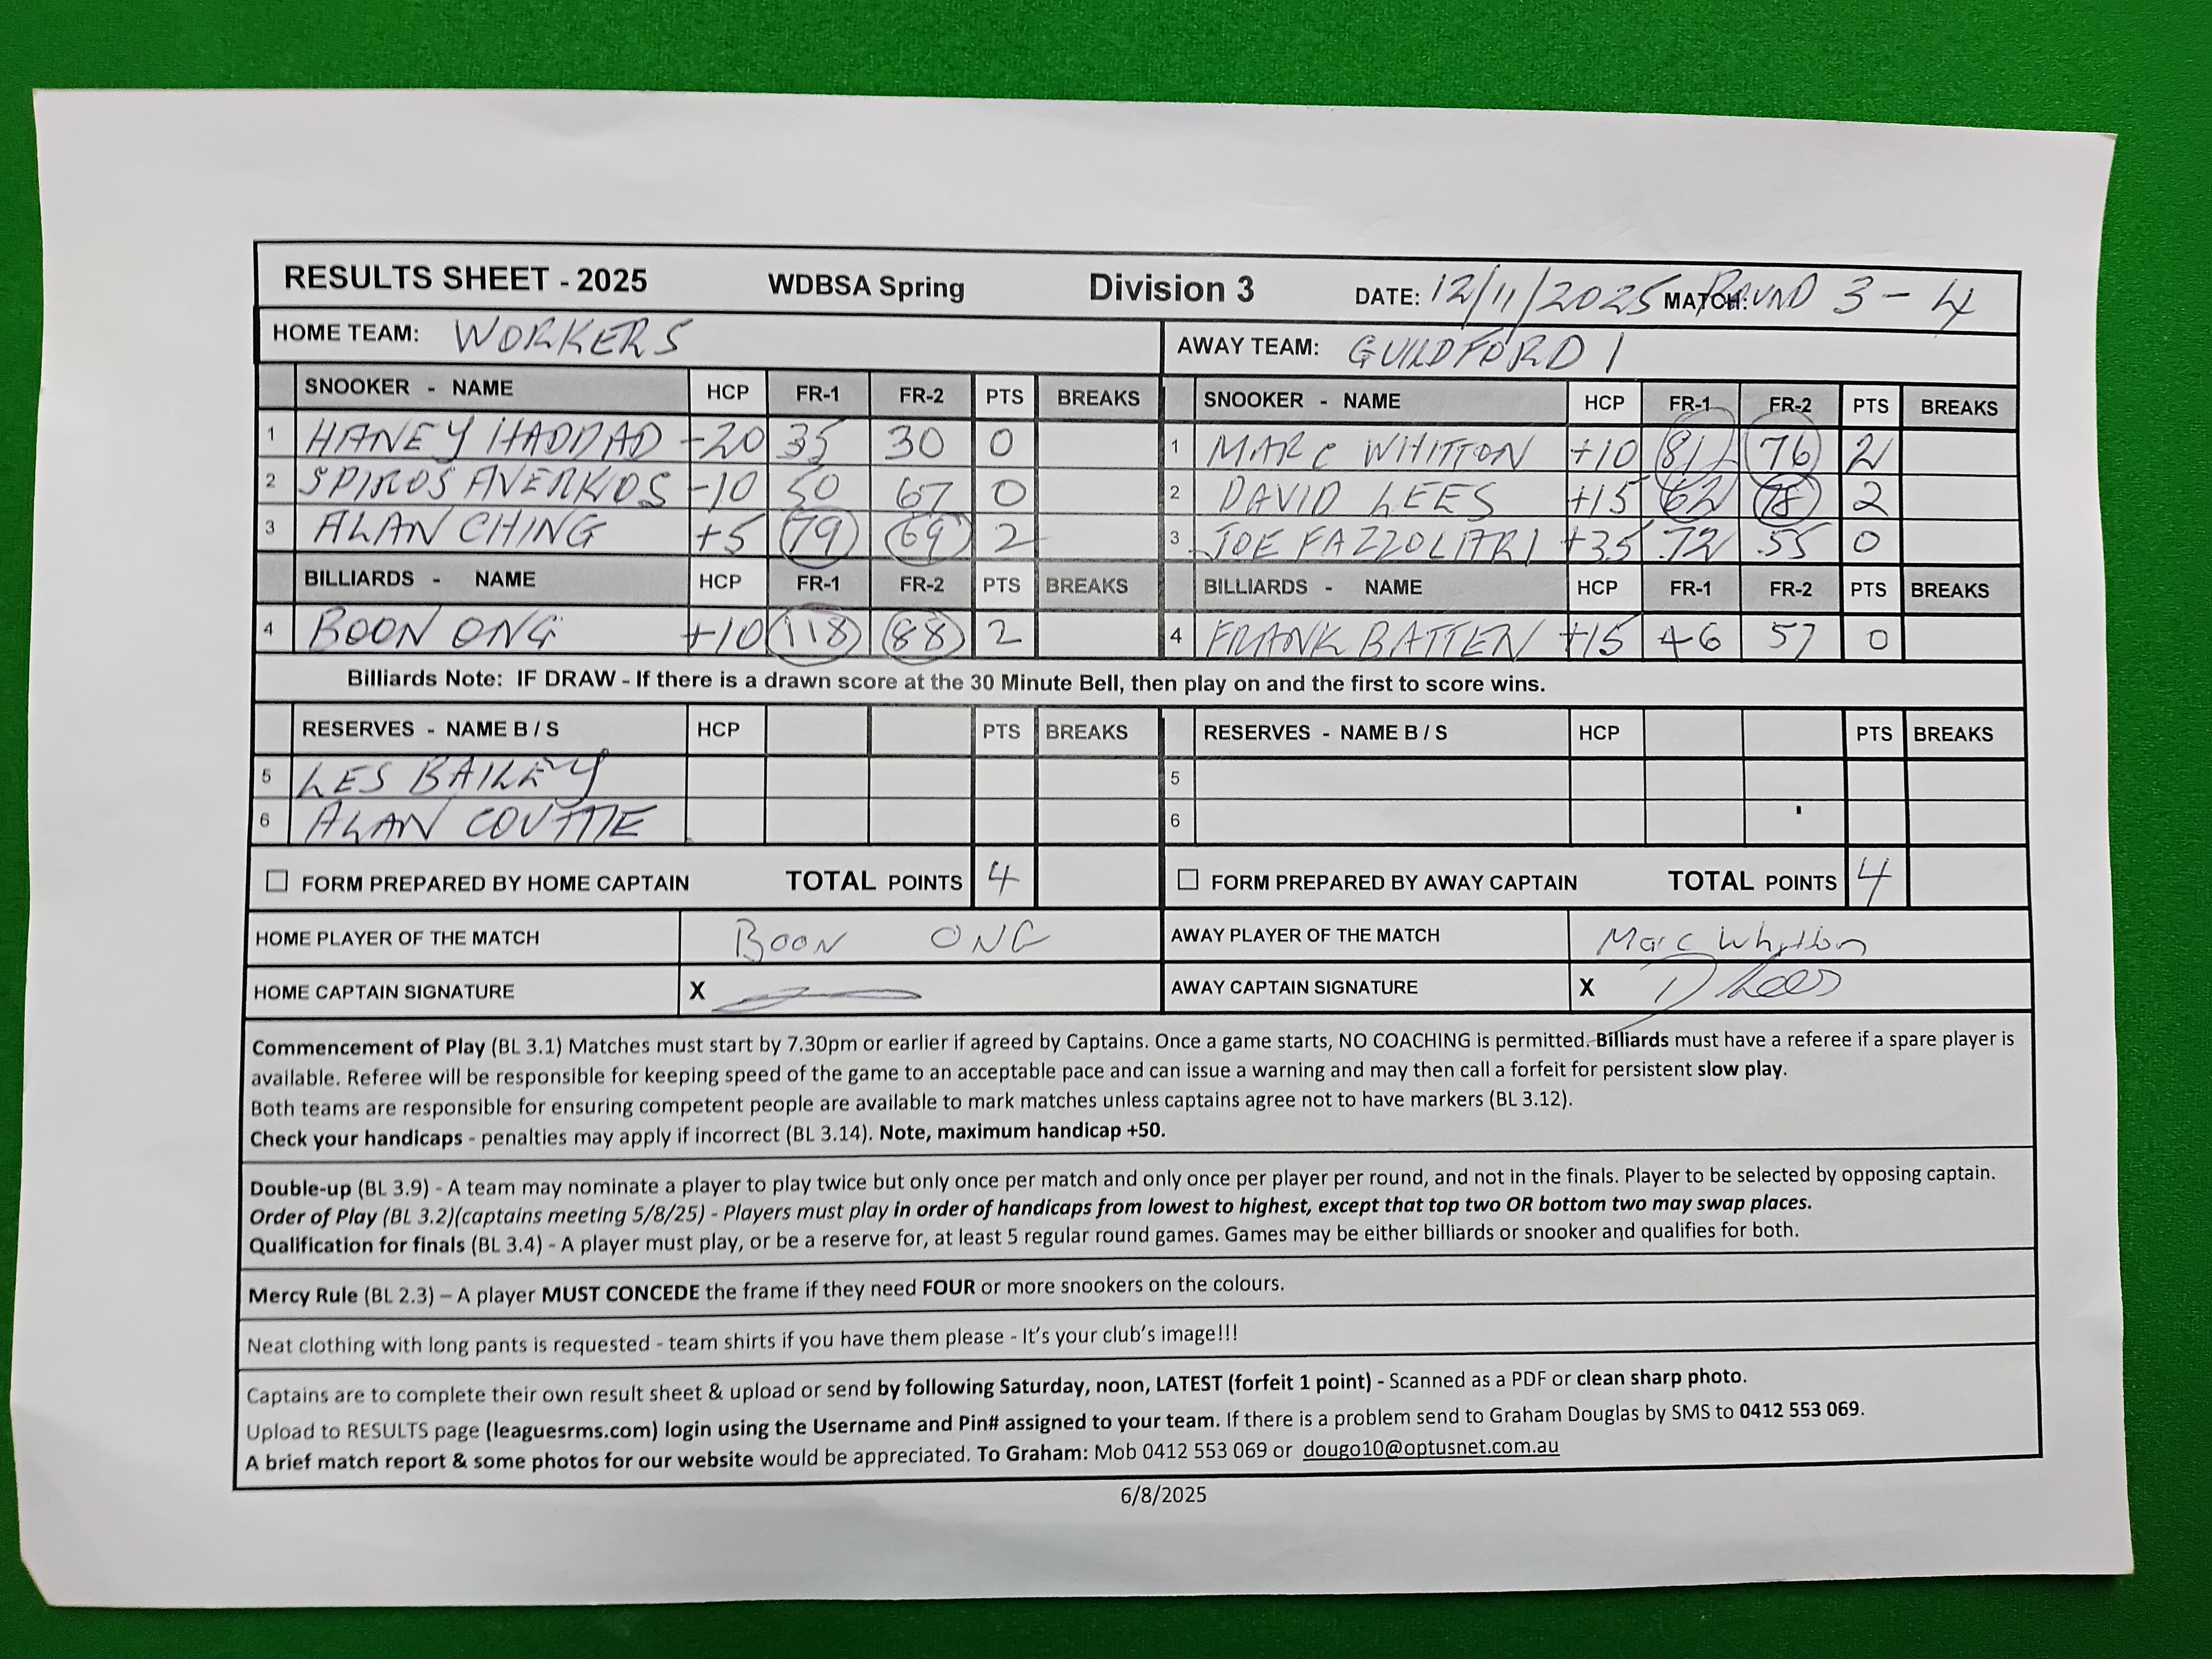 RESULTS SHEET - 2025 WDBSA Spring Division 3 DATE: 12/11/2025 MATCH: ROUND 3 - 4
HOME TEAM: WORKERS AWAY TEAM: GUILDFORD 1
SNOOKER - NAME HCP FR-1 FR-2 PTS BREAKS SNOOKER - NAME HCP FR-1 FR-2 PTS BREAKS
1 HANEY HADDAD -20 35 30 0 1 MARC WHITTON +10 81 76 2
2 SPIROS AVERKIOS -10 50 67 0 2 DAVID LEES +15 62 78 2
3 ALAN CHING +5 79 69 2 3 JOE FAZZOLARI +35 72 55 0
BILLIARDS - NAME HCP FR-1 FR-2 PTS BREAKS BILLIARDS - NAME HCP FR-1 FR-2 PTS BREAKS
4 BOON ONG +10 118 88 2 4 FRANK BATTEN +15 46 57 0
Billiards Note: IF DRAW - If there is a drawn score at the 30 Minute Bell, then play on and the first to score wins.
RESERVES - NAME B / S HCP PTS BREAKS RESERVES - NAME B / S HCP PTS BREAKS
5 LES BAILEY 5
6 ALAN COUTTIE 6
FORM PREPARED BY HOME CAPTAIN TOTAL POINTS 4 FORM PREPARED BY AWAY CAPTAIN TOTAL POINTS 4
HOME PLAYER OF THE MATCH BOON ONG AWAY PLAYER OF THE MATCH Marc Whitton
HOME CAPTAIN SIGNATURE X AWAY CAPTAIN SIGNATURE X D Lees
Commencement of Play (BL 3.1) Matches must start by 7.30pm or earlier if agreed by Captains. Once a game starts, NO COACHING is permitted. Billiards must have a referee if a spare player is
available. Referee will be responsible for keeping speed of the game to an acceptable pace and can issue a warning and may then call a forfeit for persistent slow play.
Both teams are responsible for ensuring competent people are available to mark matches unless captains agree not to have markers (BL 3.12).
Check your handicaps - penalties may apply if incorrect (BL 3.14). Note, maximum handicap +50.
Double-up (BL 3.9) - A team may nominate a player to play twice but only once per match and only once per player per round, and not in the finals. Player to be selected by opposing captain.
Order of Play (BL 3.2)(captains meeting 5/8/25) - Players must play in order of handicaps from lowest to highest, except that top two OR bottom two may swap places.
Qualification for finals (BL 3.4) - A player must play, or be a reserve for, at least 5 regular round games. Games may be either billiards or snooker and qualifies for both.
Mercy Rule (BL 2.3) – A player MUST CONCEDE the frame if they need FOUR or more snookers on the colours.
Neat clothing with long pants is requested - team shirts if you have them please - It's your club's image!!!
Captains are to complete their own result sheet & upload or send by following Saturday, noon, LATEST (forfeit 1 point) - Scanned as a PDF or clean sharp photo.
Upload to RESULTS page (leaguesrms.com) login using the Username and Pin# assigned to your team. If there is a problem send to Graham Douglas by SMS to 0412 553 069.
A brief match report & some photos for our website would be appreciated. To Graham: Mob 0412 553 069 or dougo10@optusnet.com.au
6/8/2025